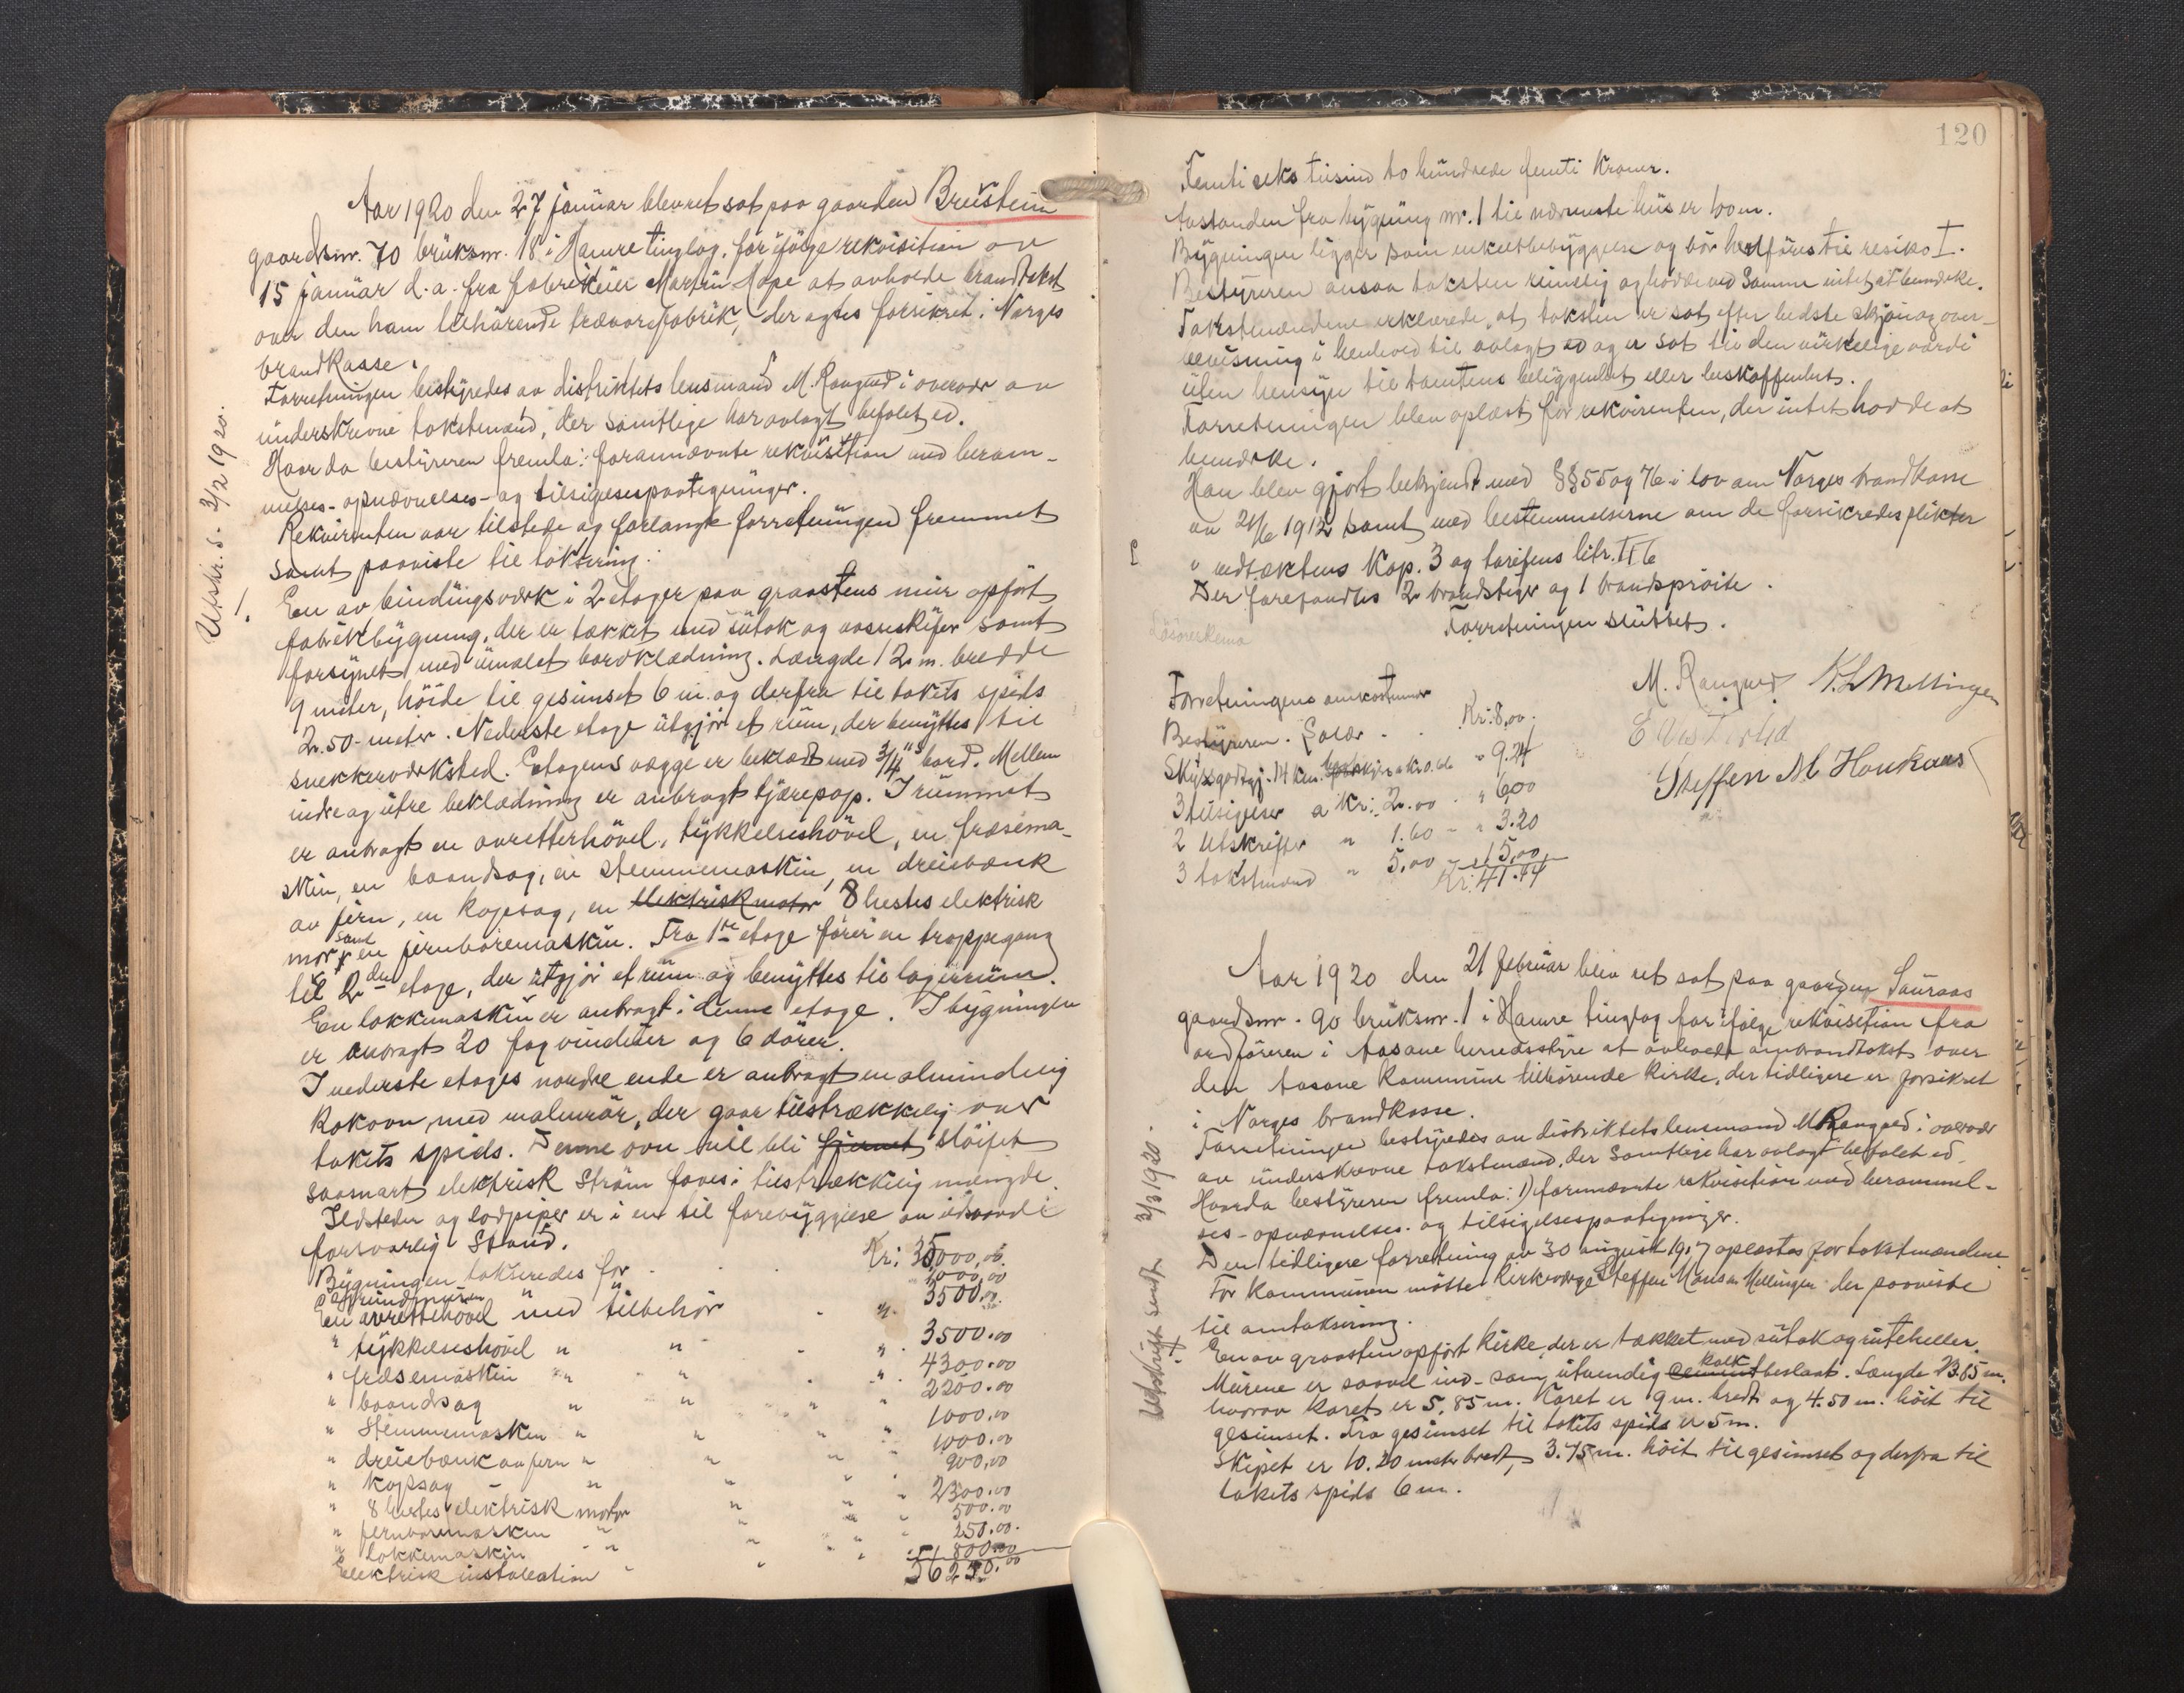 Utskr. s. 3/2 1920.
Aar 1920 den 27 januar blev ret sat paa gaarden Breistein
gaardsnr. 70 bruksnr. 18 i Hamre tinglag, for ifølge rekvisition av
15 januar d.a. fra fabrikeier Martin Hope at avholde brandtakst
over den ham tilhørende trævarefabrik, der agtes forsikret i Norges
brandkasse.
Forretningen bestyredes av distriktets lensmand M. Rongved i overvær av
underskrevne takstmænd, der samtlige har avlagt befalet ed.
Hvor da bestyreren fremla: forannævnte rekvisition med beram-
melses- opnævnelses- og tilsigelsespaategninger.
Rekvirenten var tilstede og forlangte forretningen fremmet
samt paaviste til taksering:
1. En av bindingsverk i 2 etager paa graastens mur opført
fabrikbygning, der er tækket med sutak og aaseskifer samt
forsynet med umalet bordklædning. Længde 12 m. bredde
9 meter, høide til gesimset 6 m. og derfra til takets spids
2.50 meter. Nederste etage utgjør et rum, der benyttes til
snekkerverksted. Etagens vægge er beklædt med 3/4" bord. Mellem
indre og ytre beklædning er anbragt tjærepap. I rummet
er anbragt en avretterhøvel, tykkelseshøvel, en fræsema-
skin, en baandsag, en stemmemaskin, en dreiebænk
av jern, en kapsag, en elektrisk motor 8 hestes elektrisk
motor samt en jernboremaskin. Fra 1ste etage fører en trappegang
til 2den etage, der utgjør et rum og benyttes til lagerrum.
En lokkemaskin er anbragt i denne etage. I bygningen
er anbragt 20 fag vinduer og 6 dører.
I nederste etages nordre ende er anbragt en almindelig
kokovn, med malmrør, der gaar tilstrækkelig over
takets spids. Denne ovn vil bli fjernet sløifet
saasnart elektrisk strøm faaes i tilstrækkelig mængde.
Ildsteder og lodpiper er i en til forebyggelse av ildsvaade
forsvarlig stand.
Bygningen takseredes for - Kr: 35000,00.
Grundmuren 1000,00
En avrettehøvel med tilbehør " 3500,00.
" tykkelseshøvel " " " 3500.00
" fræsemaskin " " " 4300.00
" baandsag " " " 2200.00
" stemmemaskin " " " 1000.00
" dreiebænk av jern " " " 1000.00
" kapsag - " " 900,00
" 8 hestes elektrisk motor " " 2300.00
" jernboremaskin " " " 500.00
" lokkemaskin " " " 250.00.
Elektrisk installation " " 800.00
56250.00
120
Femti seks tusind to hundrede femti Kroner.
Avstanden fra bygning nr. 1 til nærmeste hus er 100 m.
Bygningen ligger som enkeltbebyggelse og bør henføres til resiko I.
Bestyreren ansaa taksten rimelig og hadde ved samme intet at bemerke.
Takstmændene erklærede, at taksten er sat efter bedste skjøn og over-
bevisning i henhold til avlagt ed og er sat til den virkelige værdi
uten hensyn til tomtens beliggenhet eller beskaffenhet.
Forretningen blev oplæst for rekvirenten, der intet hadde at
bemerke.
Han blev gjort bekjendt med §§ 55 og 76 i lov om Norges brandkasse
av 21/6 1912 samt med bestemmelserne om de forsikredes plikter
i vedtæktens Kap. 3 og tarifens litr. II 6
Der forefandtes 2 brandstiger og 1 brandsprøite.
Løsøreskema
Forretningen sluttet.
M. Rongved K. L. Mellingen
Steffen M Haukaas
Forretningens omkostninger
Bestyreren. Salær - . Kr: 8,00.
Skyssgodtgj. 14 km. a kr 0.66 " 9.24
3 tilsigelser a kr: 2.00 - " 6,00
2 Utskrifter " 1.60 - " 3.20
3 takstmænd " 5,00 - " 15,00
Kr: 41.44
Utskrift sendt 3/3 1920.
Aar 1920 den 21 februar blev ret sat paa gaarden Sauraas
gaardsnr. 90 bruksnr. 1 i Hamre tinglag for ifølge rekvisition fra
ordføreren i Aasane herredsstyre at avholde ombrandtakst over
den Aasane kommune tilhørende kirke, der tidligere er forsikret
i Norges brandkasse.
Forretningen bestyredes av distriktets lensmand M Rongved i overvær
av underskrevne takstmænd, der samtlige har avlagt befalet ed.
Hvorda bestyreren fremla: 1) fornævnte rekvisition med berammel-
ses- opnævnelses- og tilsigelsespaategninger.
Den tidligere forretning av 30 august 1917 oplæstes for takstmændene.
For kommunen møtte kirkeverge Steffen Monsen Mellingen der paaviste
til omtaksering.
1. En av graasten opført kirke, der er tækket med sutak og ruteheller.
Murene er saavel ind- som utvendig cement kalkbeslaat. Længde 23.65 m.
hvorav koret er 5,85 m. Koret er 9 m. bredt og 4.50 m. høit til
gesimset. Fra gesimset til takets spids er 5 m.
Skipet er 10.20 meter bredt, 3.75 m. høit til gesimset og derfra til
takets spids 6 m.